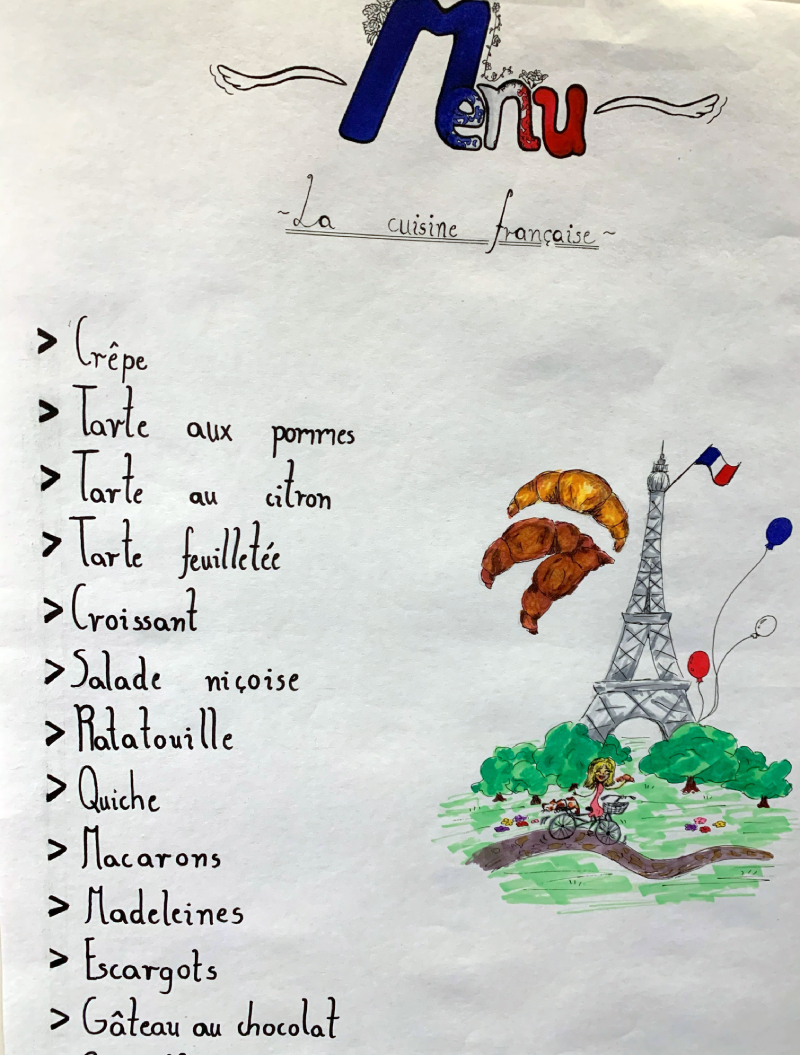 Menu
~La cuisine française~
> Crêpe
> Tarte aux pommes
> Tarte au citron
> Tarte feuilletée
> Croissant
> Salade niçoise
> Ratatouille
> Quiche
> Macarons
> Madeleines
> Escargots
> Gâteau au chocolat